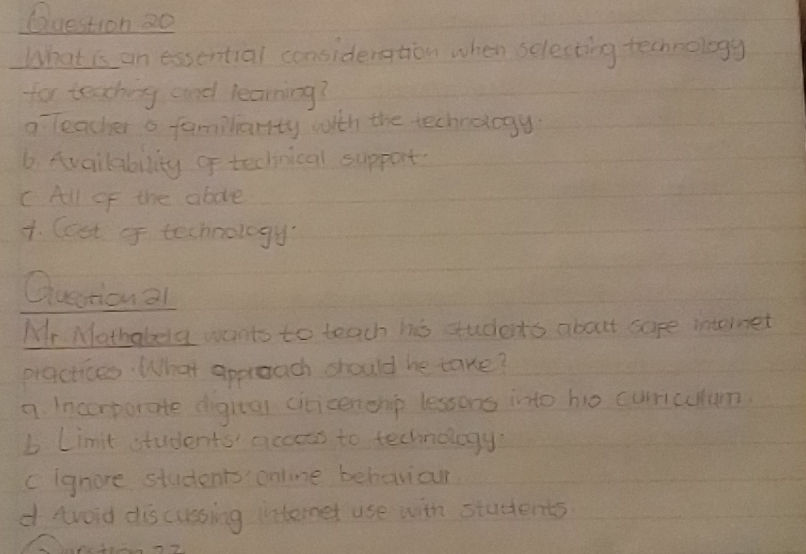 Question 20
What is an essential consideration when selecting technology
for teaching and learning?
a Teacher's familiarity with the technology.
b. Availability of technical support.
c All of the above
d. Cost of technology.
Question 21
Mr Mathabela wants to teach his students about safe internet
practices. What approach should he take?
a. Incorporate digital citizenship lessons into his curriculum.
b Limit students' access to technology.
c Ignore students' online behaviour
d Avoid discussing internet use with students.
Question 22